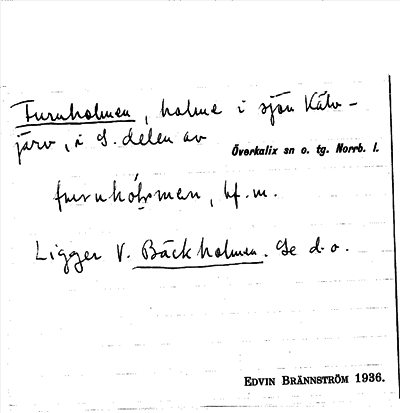 Furuholmen, holme i sjön Kälv-
järv, i S. delen av
Överkalix sn o. tg. Norrb. l.
bf. m.
Ligger V. Bäckholmen. Se d. o.
EDVIN BRÄNNSTRÖM 1936.